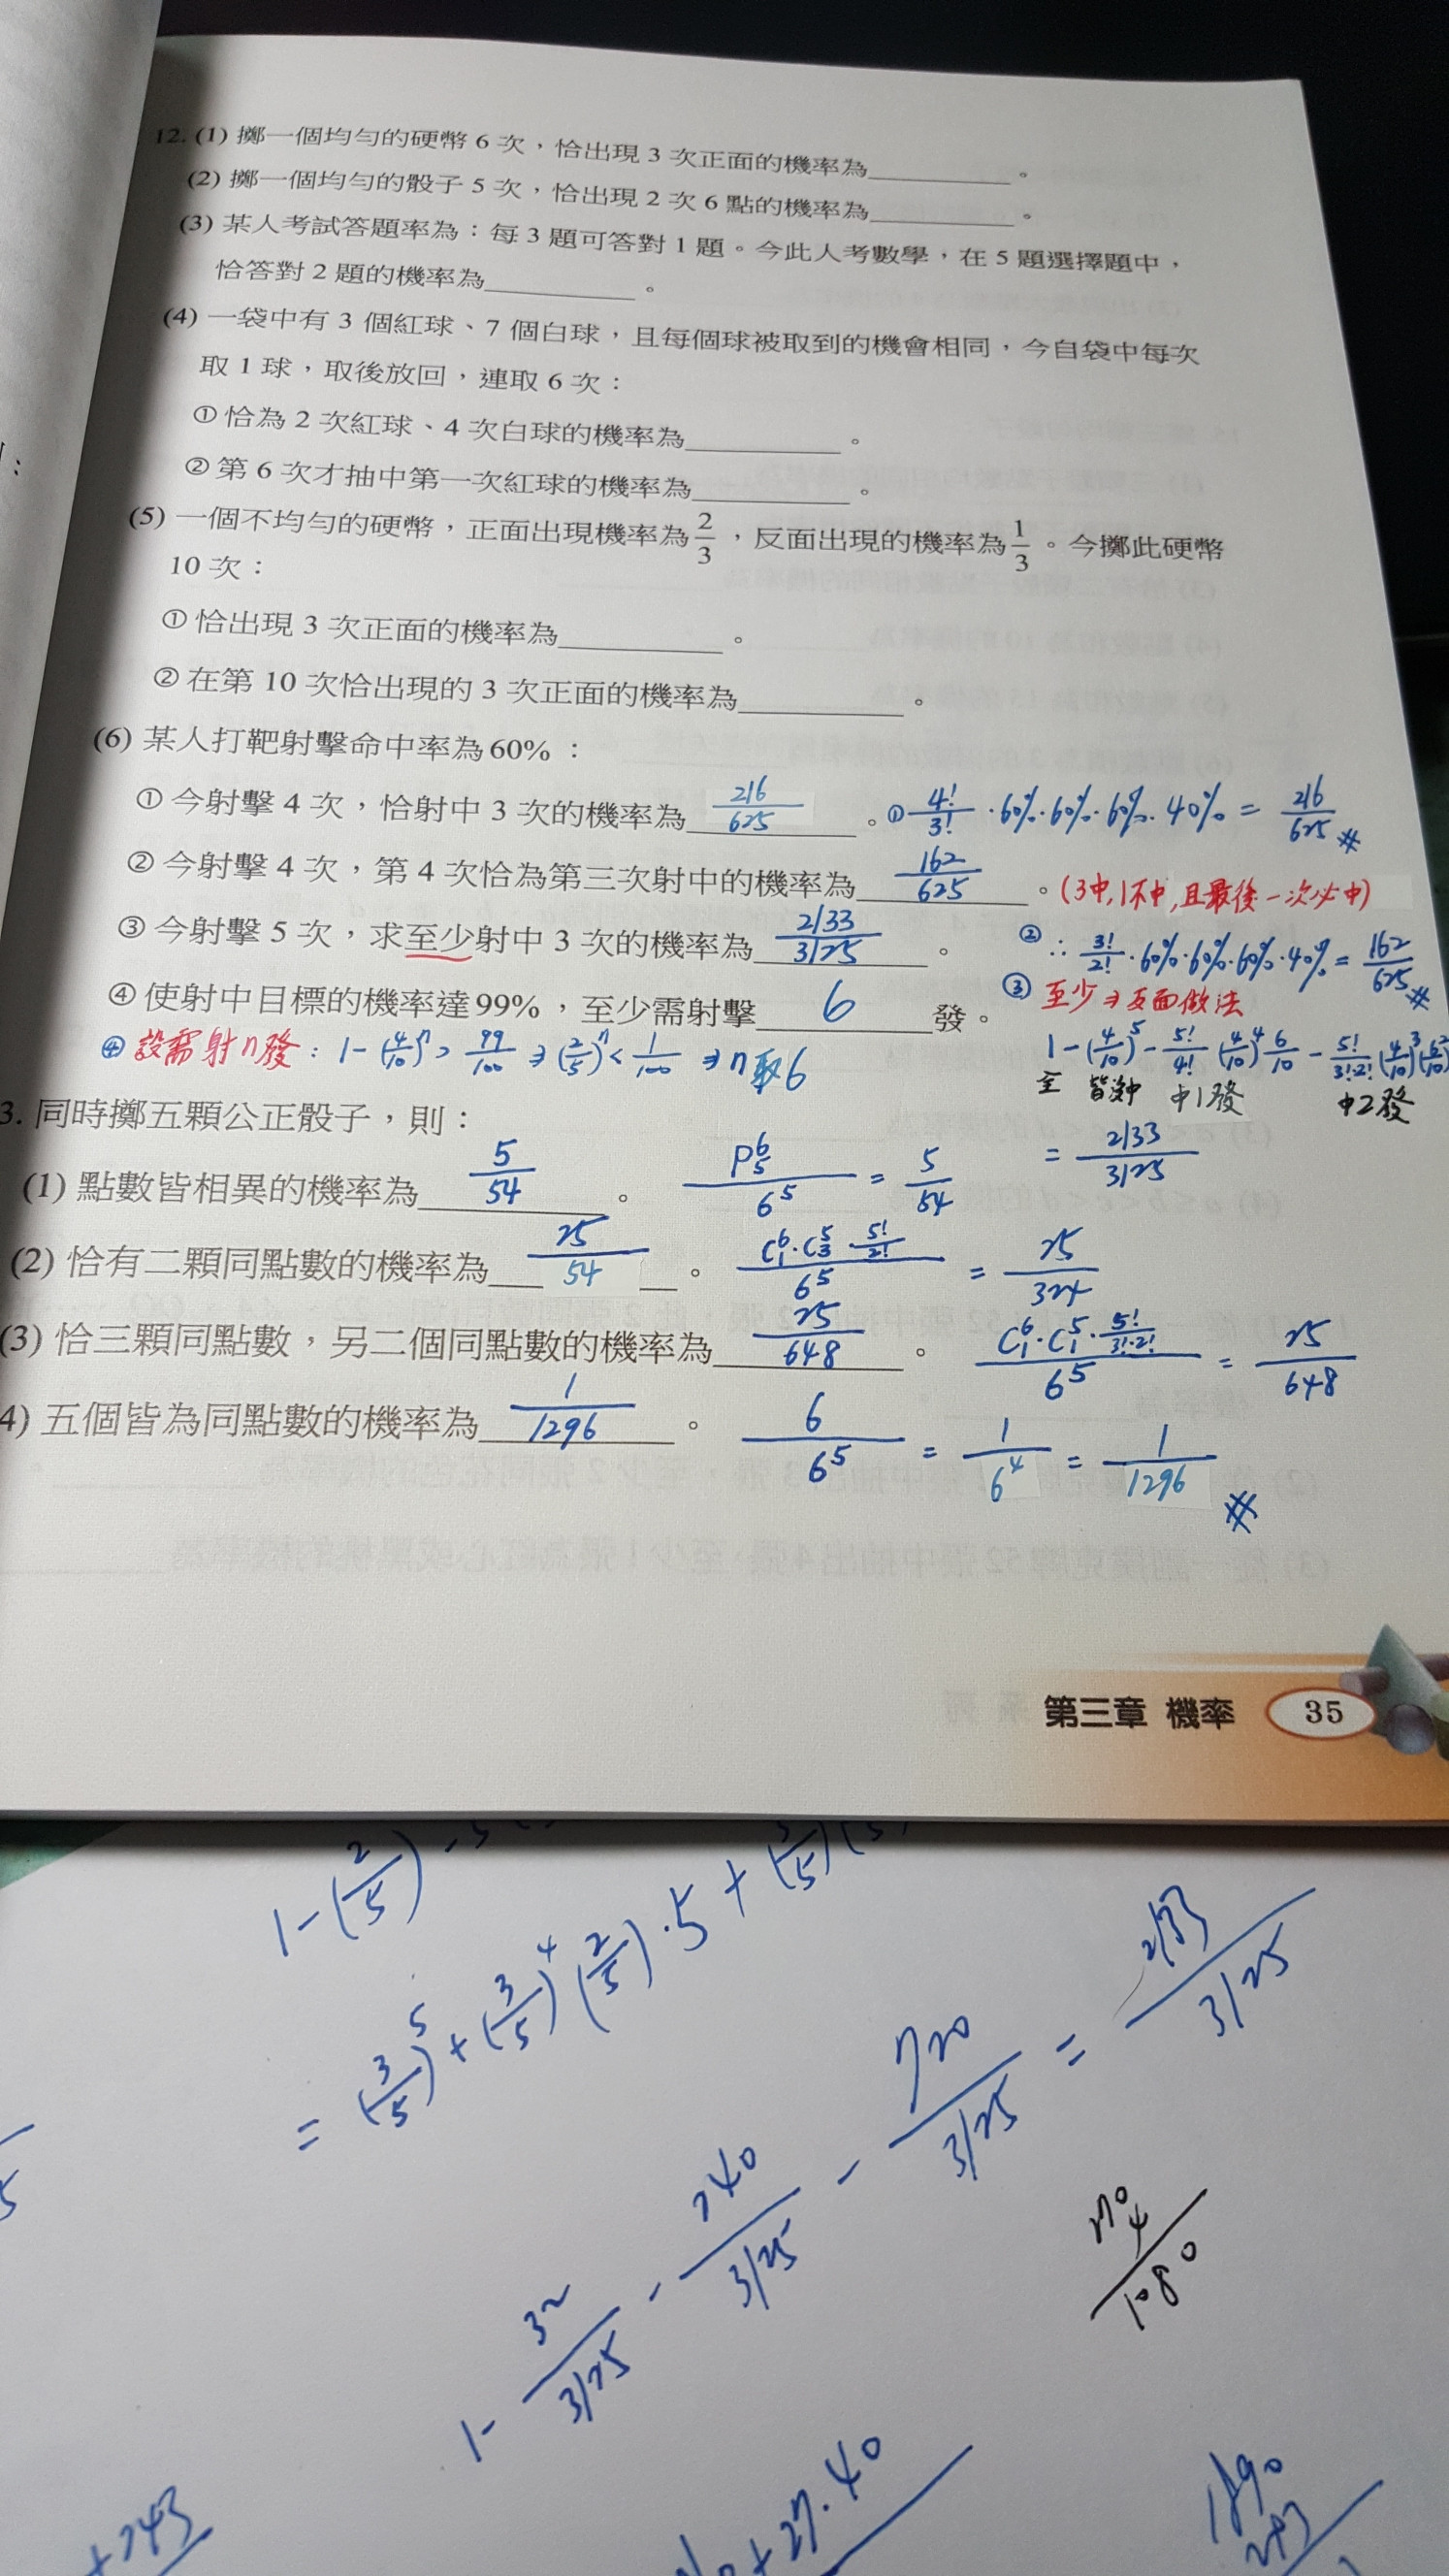 12. (1) 擲一個均勻的硬幣 6 次，恰出現 3 次正面的機率為________。
(2) 擲一個均勻的骰子 5 次，恰出現 2 次 6 點的機率為________。
(3) 某人考試答題率為：每 3 題可答對 1 題。今此人考數學，在 5 題選擇題中，
恰答對 2 題的機率為________。
(4) 一袋中有 3 個紅球、7 個白球，且每個球被取到的機會相同，今自袋中每次
取 1 球，取後放回，連取 6 次：
① 恰為 2 次紅球、4 次白球的機率為________。
② 第 6 次才抽中第一次紅球的機率為________。
(5) 一個不均勻的硬幣，正面出現機率為 2/3，反面出現的機率為 1/3。今擲此硬幣
10 次：
① 恰出現 3 次正面的機率為________。
② 在第 10 次恰出現的 3 次正面的機率為________。
(6) 某人打靶射擊命中率為 60%：
① 今射擊 4 次，恰射中 3 次的機率為 216/625。① 4!/3! · 60% · 60% · 60% · 40% = 216/625 #
② 今射擊 4 次，第 4 次恰為第三次射中的機率為 162/625。(3中,1不中,且最後一次必中)
② ∴ 3!/2! · 60% · 60% · 60% · 40% = 162/625 #
③ 今射擊 5 次，求至少射中 3 次的機率為 2133/3125。
③ 至少⇒反面做法
④ 使射中目標的機率達 99%，至少需射擊 6 發。
④ 設需射n發：1-(4/10)^n > 99/100 ⇒ (2/5)^n < 1/100 ⇒ n取6
1-(4/10)^5 - 5!/4! (4/10)^4 6/10 - 5!/3!·2! (4/10)^3 (6/10)^2
中1發 中2發
= 2133/3125
3. 同時擲五顆公正骰子，則：
(1) 點數皆相異的機率為 5/54。 P^6_5/6^5 = 5/54
(2) 恰有二顆同點數的機率為 25/54。 C^6_1·C^5_3·5!/2! / 6^5 = 25/324
(3) 恰三顆同點數，另二個同點數的機率為 25/648。 C^6_1·C^5_1·5!/3!·2! / 6^5 = 25/648
4) 五個皆為同點數的機率為 1/1296。 6/6^5 = 1/6^4 = 1/1296 #
第三章 機率 35
1-(2/5)
= (3/5)^5 + (3/5)^4 (2/5)·5 +
1 - 32/3125 - 240/3125 - 720/3125 = 2133/3125
1080
+243
+27·40